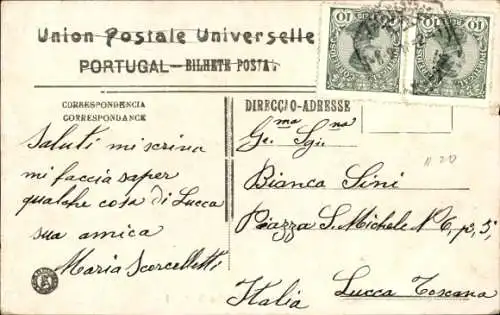 Union Postale Universelle
PORTUGAL — BILHETE POSTAL
CORRESPONDENCIA
CORRESPONDANCE
DIRECÇÃO-ADRESSE
Saluti mi scriva
mi faccia saper
qualche cosa di Lucca
sua amica
Maria Scorcelletti
Ge.ma Sgi.na
Bianca Sini
Piazza S. Michele N° 6, p, 5,
Lucca Toscana
Italia
N 20
10 10